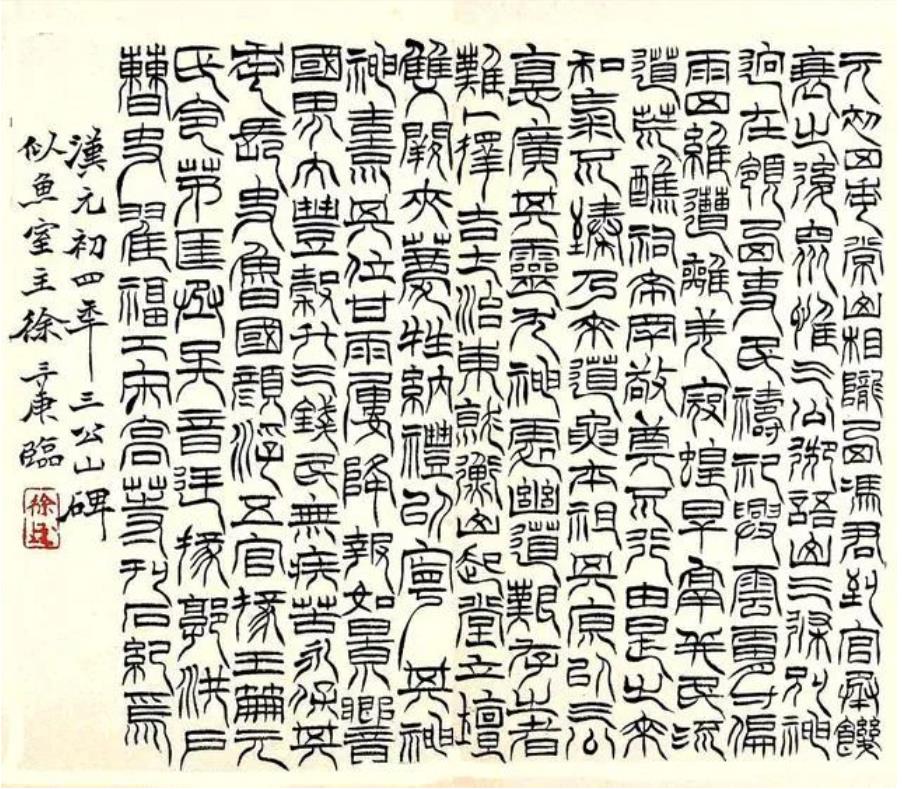 元初四年常山相隴西馮君到官承饑
衰之後惟三公御語山三條別神
迥在領西吏民禱祀興雲膚寸偏
雨四維遭離羌寇蝗旱鬲我民流
道荒醮祠希罕敬奠不行由是之來
和氣不臻乃來道要本祖其原以三公
悳廣其靈尤神處幽道艱存之者
難卜擇吉土治東就衡山起堂立壇
雙闕夾薦牲納禮以寧其神
神熹其位甘雨屢降報如景響
國界大豐穀斗三錢民無疾苦永保其
年長史魯國顏浮五官掾王笧元
氏令茅匡丞吳音廷掾郭洪戶
曹史翟福工宋高等刊石紀焉
漢元初四年三公山碑
似魚室主徐三庚臨